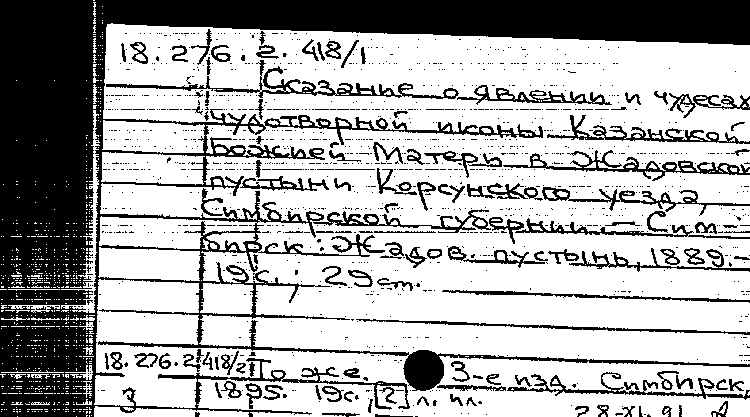 18.276.2.418/1
Сказание о явлении и чудесах
чудотворной иконы Казанской
Божией Матери в Жадовской
пустыни Корсунского уезда,
Симбирской губернии. — Сим-
бирск: Жадов. пустынь, 1889. —
19с.; 29см.
18.276.2.418/2 То же. 3-е изд. Симбирск,
3 1895. 19с., [2] л. ил.
28-XI.91